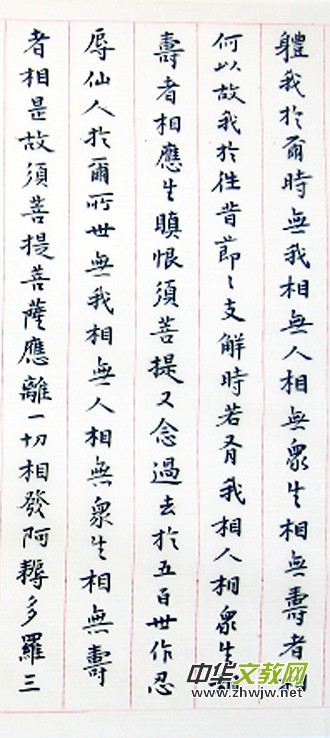 體我於爾時無我相無人相無眾生相無壽者相
何以故我於往昔節〻支解時若有我相人相眾生相
壽者相應生瞋恨須菩提又念過去於五百世作忍
辱仙人於爾所世無我相無人相無眾生相無壽
者相是故須菩提菩薩應離一切相發阿耨多羅三
中华文教网
www.zhwjw.net